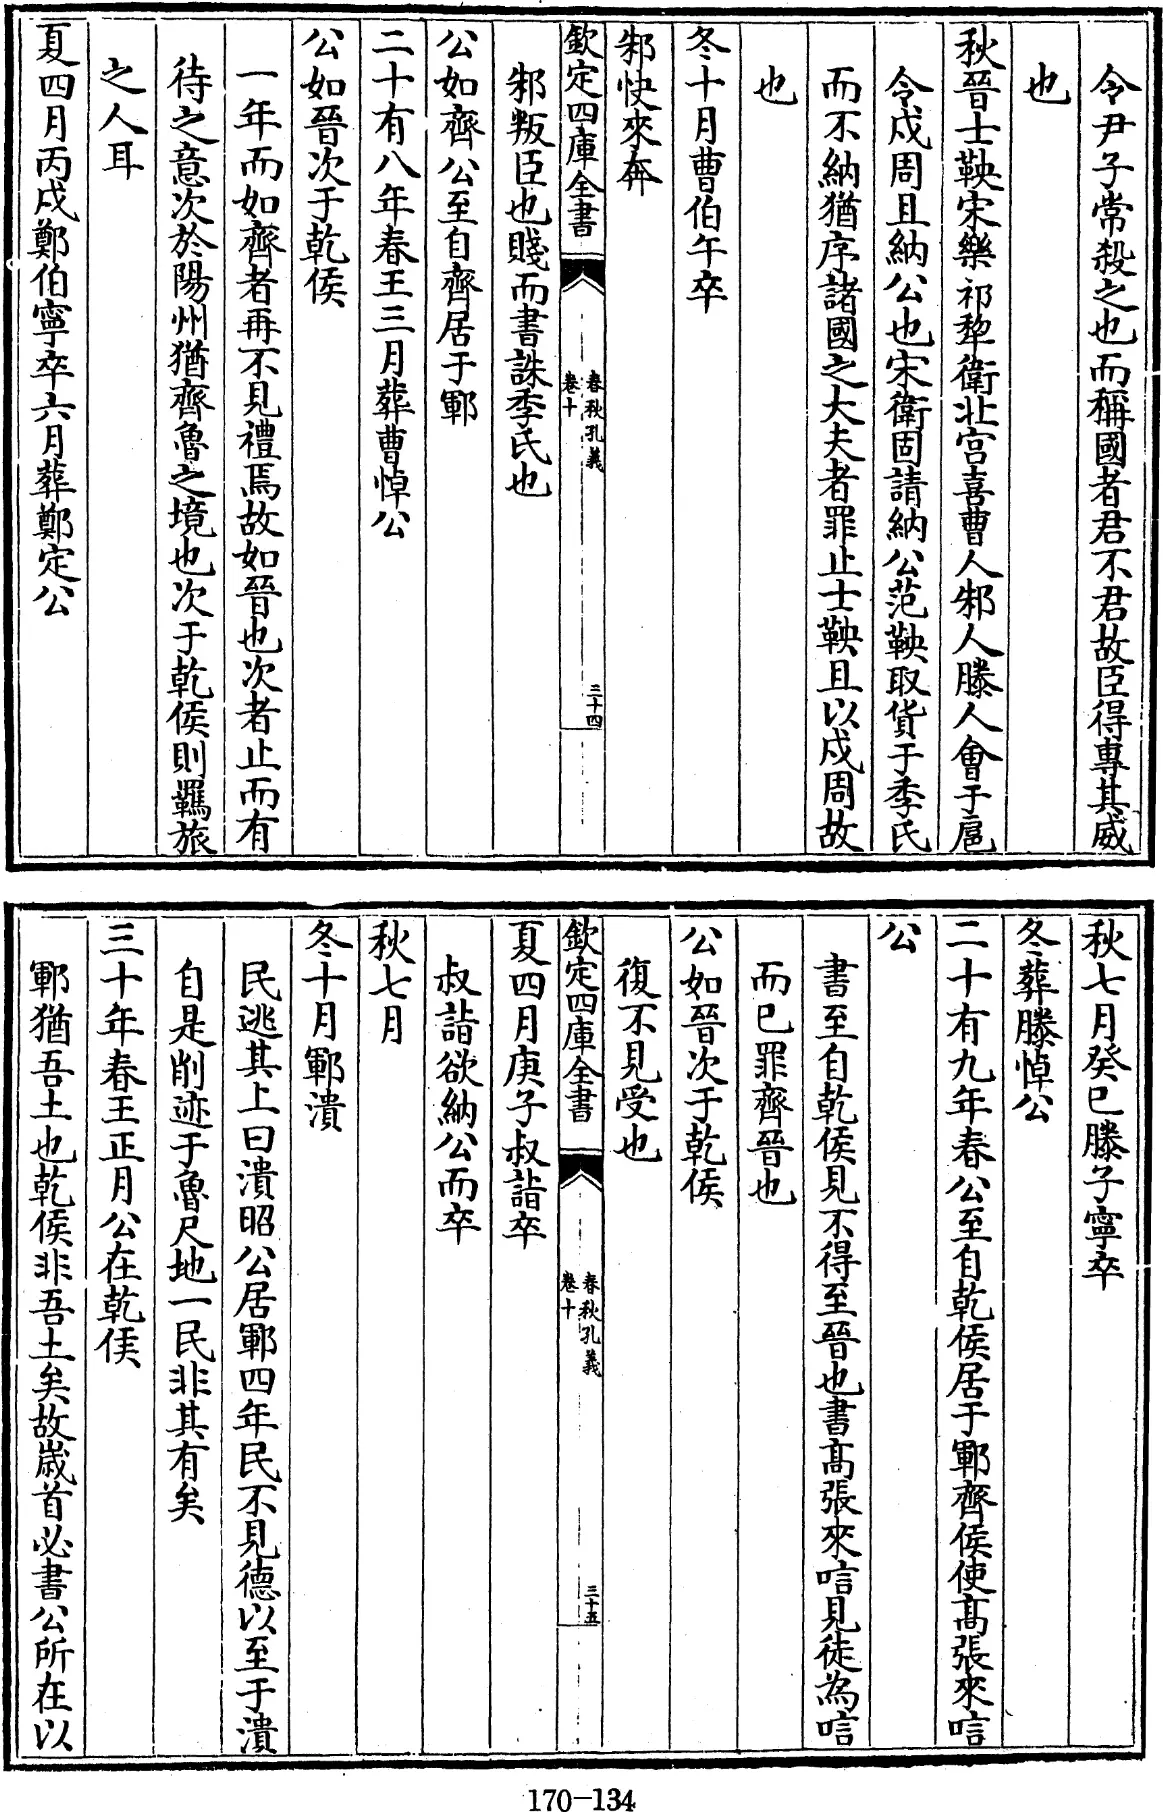 令尹子常殺之也而稱國者君不君故臣得專其威
也
秋晉士鞅宋樂祁犂衛北宫喜曹人邾人滕人會于扈
令戍周且納公也宋衛固請納公范鞅取貨于季氏
而不納猶序諸國之大夫者罪止士鞅且以戍周故
也
冬十月曹伯午卒
邾快來奔
欽定四庫全書
春秋孔義
卷十
三十四
邾叛臣也賤而書誅季氏也
公如齊公至自齊居于鄆
二十有八年春王三月葬曹悼公
公如晉次于乾侯
一年而如齊者再不見禮焉故如晉也次者止而有
待之意次於陽州猶齊魯之境也次于乾侯則羈旅
之人耳
夏四月丙戌鄭伯寧卒六月葬鄭定公
秋七月癸巳滕子寧卒
冬葬滕悼公
二十有九年春公至自乾侯居于鄆齊侯使髙張來唁
公
書至自乾侯見不得至晉也書髙張來唁見徒為唁
而已罪齊晉也
公如晉次于乾侯
復不見受也
欽定四庫全書
春秋孔義
卷十
三十五
夏四月庚子叔詣卒
叔詣欲納公而卒
秋七月
冬十月鄆潰
民逃其上曰潰昭公居鄆四年民不見德以至于潰
自是削迹于魯尺地一民非其有矣
三十年春王正月公在乾侯
鄆猶吾土也乾侯非吾土矣故歲首必書公所在以
170-134